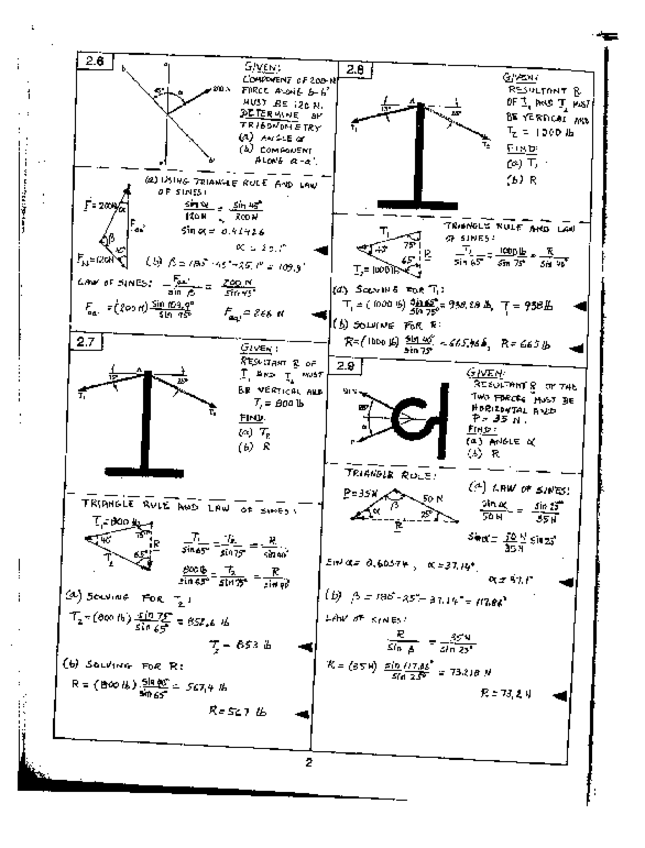 2.6
GIVEN:
COMPONENT OF 200-N
FORCE ALONG b-b'
MUST BE 120 N.
DETERMINE BY
TRIGONOMETRY
(a) ANGLE α
(b) COMPONENT
ALONG a-a'.
a
b
45°
α
200 N
(a) USING TRIANGLE RULE AND LAW
OF SINES:
F=200N
α
β
45°
sin α / 120 N = sin 45° / 200 N
sin α = 0.42426
α = 25.1°
(b) β = 180°-45°-25.1° = 109.9°
LAW OF SINES: F aa' / sin β = 200 N / sin 45°
F aa' = (200N) sin 109.9° / sin 45°
F aa' = 266 N
2.7
GIVEN:
RESULTANT R OF
T1 AND T2 MUST
BE VERTICAL AND
T1 = 800 lb
FIND:
(a) T2
(b) R
A
15°
25°
T1
T2
TRIANGLE RULE AND LAW OF SINES:
T1=800 lb
75°
40°
R
T2
65°
T1 / sin 65° = T2 / sin 75° = R / sin 40°
800 lb / sin 65° = T2 / sin 75° = R / sin 40°
(a) SOLVING FOR T2:
T2=(800 lb) sin 75° / sin 65° = 852.6 lb
T2 = 853 lb
(b) SOLVING FOR R:
R = (800 lb) sin 40° / sin 65° = 567.4 lb
R = 567 lb
2.8
GIVEN:
RESULTANT R
OF T1 AND T2 MUST
BE VERTICAL AND
T2 = 1000 lb
FIND:
(a) T1
(b) R
A
T1
T2
TRIANGLE RULE AND LAW
OF SINES:
T1
75°
65°
R
T2=1000 lb
T1 / sin 65° = 1000 lb / sin 75° = R / sin 40°
(a) SOLVING FOR T1:
T1 = (1000 lb) sin 65° / sin 75° = 938.28 lb, T1 = 938 lb
(b) SOLVING FOR R:
R=(1000 lb) sin 40° / sin 75° = 665.46 lb, R = 665 lb
2.9
GIVEN:
RESULTANT R OF THE
TWO FORCES MUST BE
HORIZONTAL AND
P = 35 N.
FIND:
(a) ANGLE α
(b) R
25°
α
P
TRIANGLE RULE:
P=35N
β
50 N
α
25°
R
(a) LAW OF SINES:
sin α / 50 N = sin 25° / 35 N
sin α = 50 N / 35 N sin 25°
sin α = 0.60374, α = 37.14°
α = 37.1°
(b) β = 180°-25°-37.14° = 117.86°
LAW OF SINES:
R / sin β = 35 N / sin 25°
R = (35N) sin 117.86° / sin 25° = 73.218 N
R = 73.2 N
2